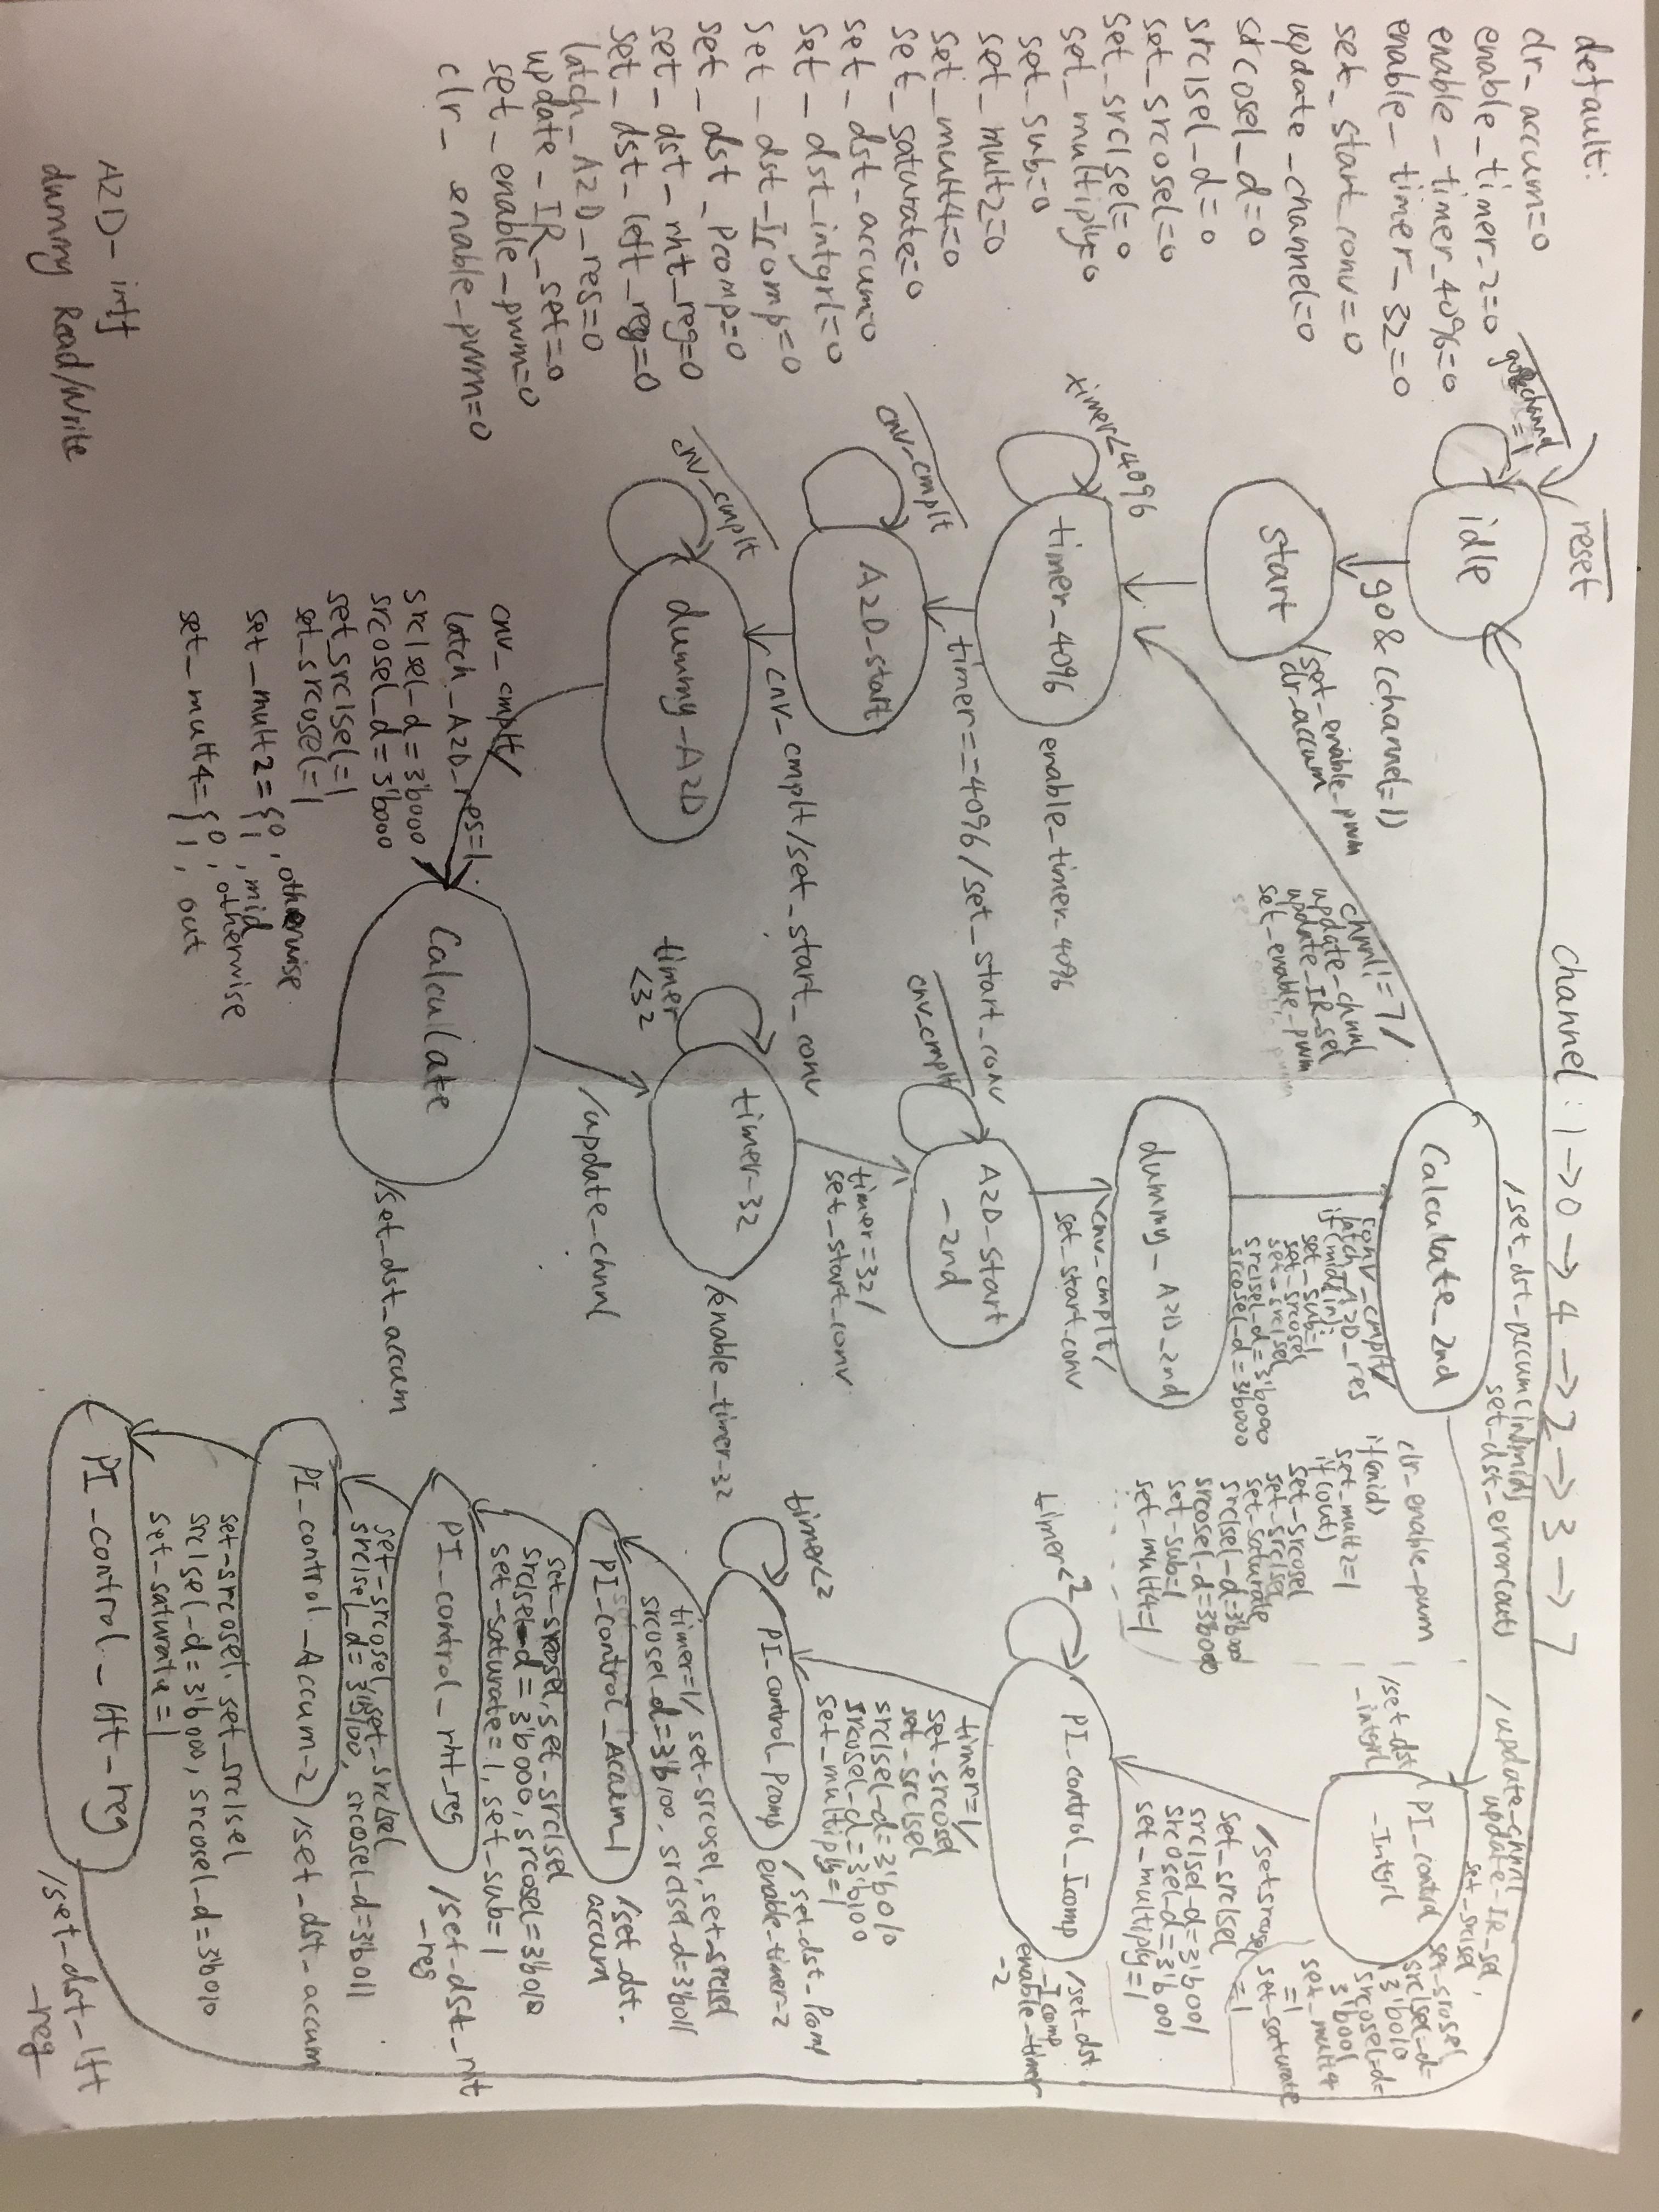 default:
clr_accum=0
enable_timer_2=0
enable_timer_4096=0
enable_timer_32=0
set_start_conv=0
update_channel=0
srcosel_d=0
src1sel_d=0
set_srcosel=0
set_src1sel=0
set_multiply=0
set_sub=0
set_mult2=0
set_mult4=0
set_saturate=0
set_dst_accum=0
set_dst_intgrl=0
set_dst_Icomp=0
set_dst_Pcomp=0
set_dst_rht_reg=0
set_dst_left_reg=0
latch_A2D_res=0
update_IR_set=0
set_enable_pwm=0
clr_enable_pwm=0
A2D_intf
dummy Read/Write
reset
go&channel
=1
idle
go&(channel=1)
start
/set_enable_pwm
clr_accum
timer<4096
timer_4096
enable_timer_4096
timer==4096/set_start_conv
cnv_cmplt
A2D_start
cnv_cmplt/set_start_conv
cnv_cmplt
dummy_A2D
cnv_cmplt/
latch_A2D_res=1
src1sel_d=3'b000
srcosel_d=3'b000
set_src1sel=1
set_srcosel=1
set_mult2={0, otherwise
1, mid
set_mult4={0, otherwise
1, out
Calculate
/set_dst_accum
/update_chnnl
timer-32
/enable_timer-32
timer
<32
timer=32/
set_start_conv
A2D_start
-2nd
cnv_cmplt
cnv_cmplt/
set_start_conv
dummy_A2D_2nd
conv_cmplt/
latch_A2D_res
if(mid/in):
set_sub=1
set_srcosel
set_src1sel
src1sel_d=3'b000
srcosel_d=3'b000
clr_enable_pwm
if(mid)
set_mult2=1
if(out)
set_srcosel
set_src1sel
set-saturate
src1sel-d=3'b000
srcosel-d=3'b000
set-sub=1
set-mult4=1
Calculate_2nd
/set_dst_accum(in/mid)
set_dst_error(out)
chnnl!=7/
update_chnnl
update_IR_sel
set_enable_pwm
channel: 1→0→4→2→3→7
/update_chnnl
update-IR_sel,
set_src1sel
set_srosel
src1sel-d=
3'b010
srcosel-d=
3'b001
set_mult4
=1
set-saturate
=1
/set_dst
-intgrl
PI_control
-Intgrl
/setsrcosel
set_src1sel
src1sel-d=3'b001
srcosel-d=3'b001
set_multiply=1
timer<2
PI_control_Icomp
/set_dst
-Icomp
enable-timer
-2
timer=1/
set_srcosel
set_src1sel
src1sel-d=3'b010
srcosel-d=3'b100
set_multiply=1
timer<2
PI_control_Pcomp
/set-dst_Pcomp
enable_timer-2
timer=1/ set-srcosel, set_src1sel
srcosel_d=3'b100. src1sel-d=3'b011
PI_control_Accum_1
/set_dst.
accum
set_srcosel, set_src1sel
src1sel-d=3'b000, srcosel=3'b010
set-saturate=1, set_sub=1
PI_control_rht_reg
/set-dst_rht
-reg
set-srcosel, set_src1sel
src1sel_d=3'b100, srcosel-d=3'b011
PI_control_Accum-2
/set_dst_accum
set-srcosel. set_src1sel
src1sel-d=3'b000, srcosel-d=3'b010
set-saturate=1
PI_control_lft_reg
/set-dst-lft
-reg